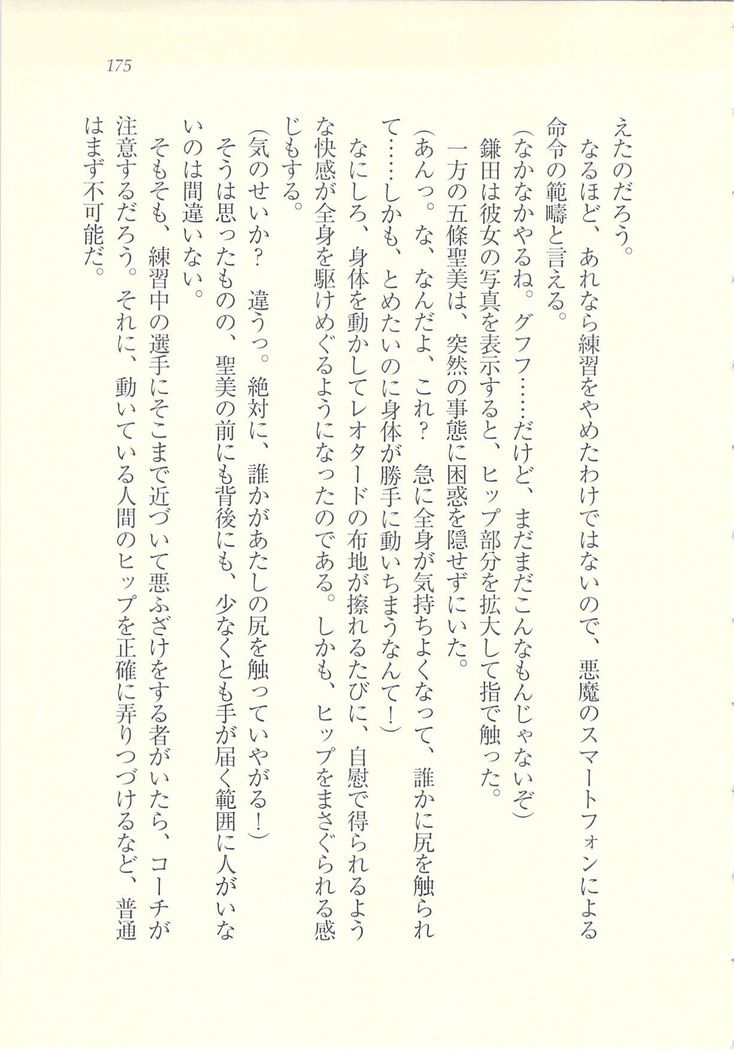 175
えたのだろう。
なるほど、あれなら練習をやめたわけではないので、悪魔のスマートフォンによる
命令の範疇と言える。
(なかなかやるね。グフフ……だけど、まだまだこんなもんじゃないぞ)
鎌田は彼女の写真を表示すると、ヒップ部分を拡大して指で触った。
一方の五條聖美は、突然の事態に困惑を隠せずにいた。
(あんっ。な、なんだよ、これ?　急に全身が気持ちよくなって、誰かに尻を触られ
て……しかも、とめたいのに身体が勝手に動いちまうなんて!)
なにしろ、身体を動かしてレオタードの布地が擦れるたびに、自慰で得られるよう
な快感が全身を駆けめぐるようになったのである。しかも、ヒップをまさぐられる感
じもする。
(気のせいか?　違うっ。絶対に、誰かがあたしの尻を触っていやがる!)
そうは思ったものの、聖美の前にも背後にも、少なくとも手が届く範囲に人がいな
いのは間違いない。
そもそも、練習中の選手にそこまで近づいて悪ふざけをする者がいたら、コーチが
注意するだろう。それに、動いている人間のヒップを正確に弄りつづけるなど、普通
はまず不可能だ。